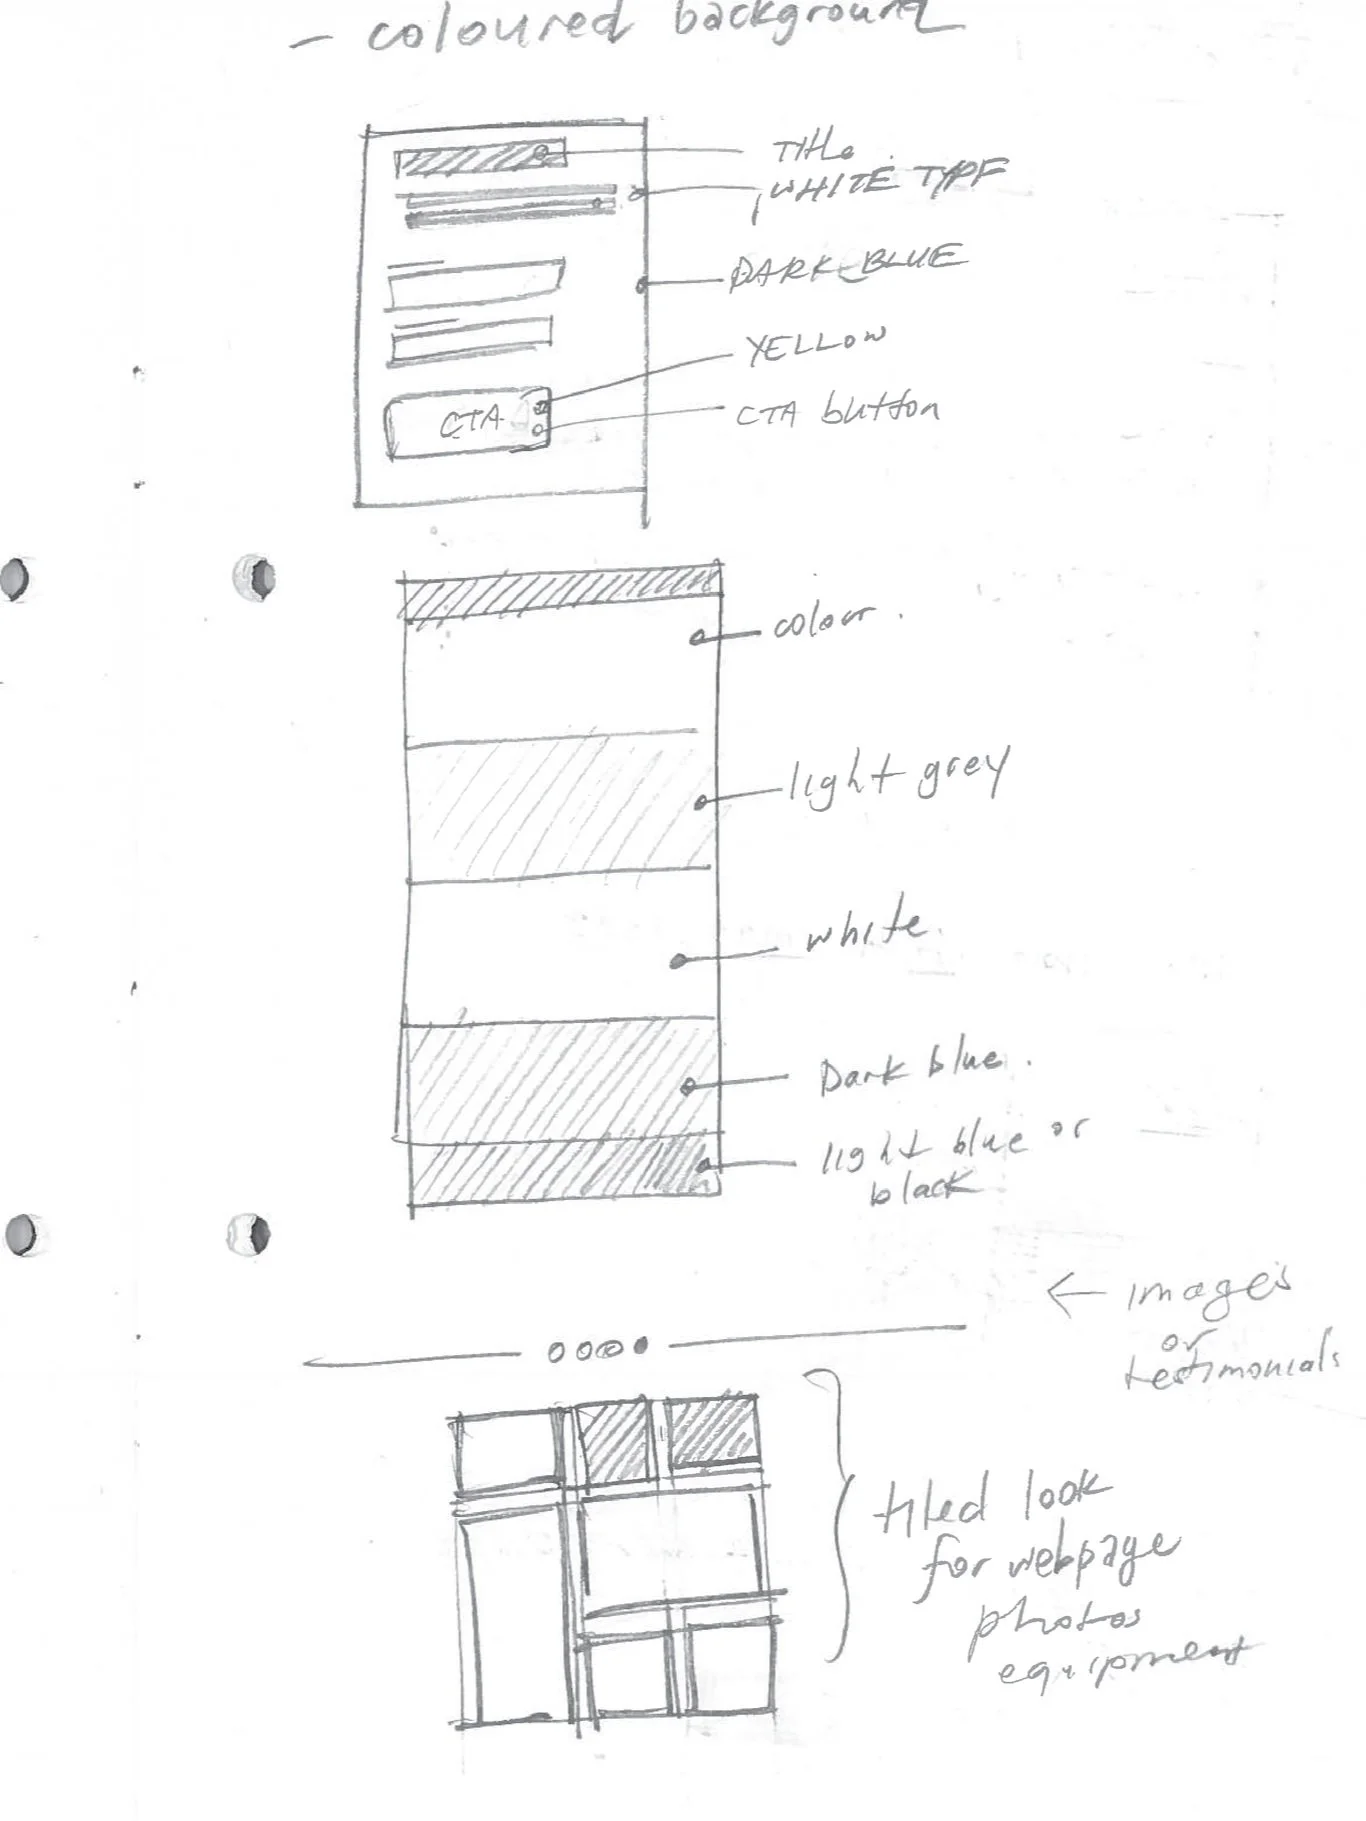 - coloured background
Title
WHITE TYPE
DARK BLUE
YELLOW
CTA
CTA button
colour.
light grey
white.
Dark blue.
light blue or
black
← images
or
testimonials
tiled look
for webpage
photos
equipment